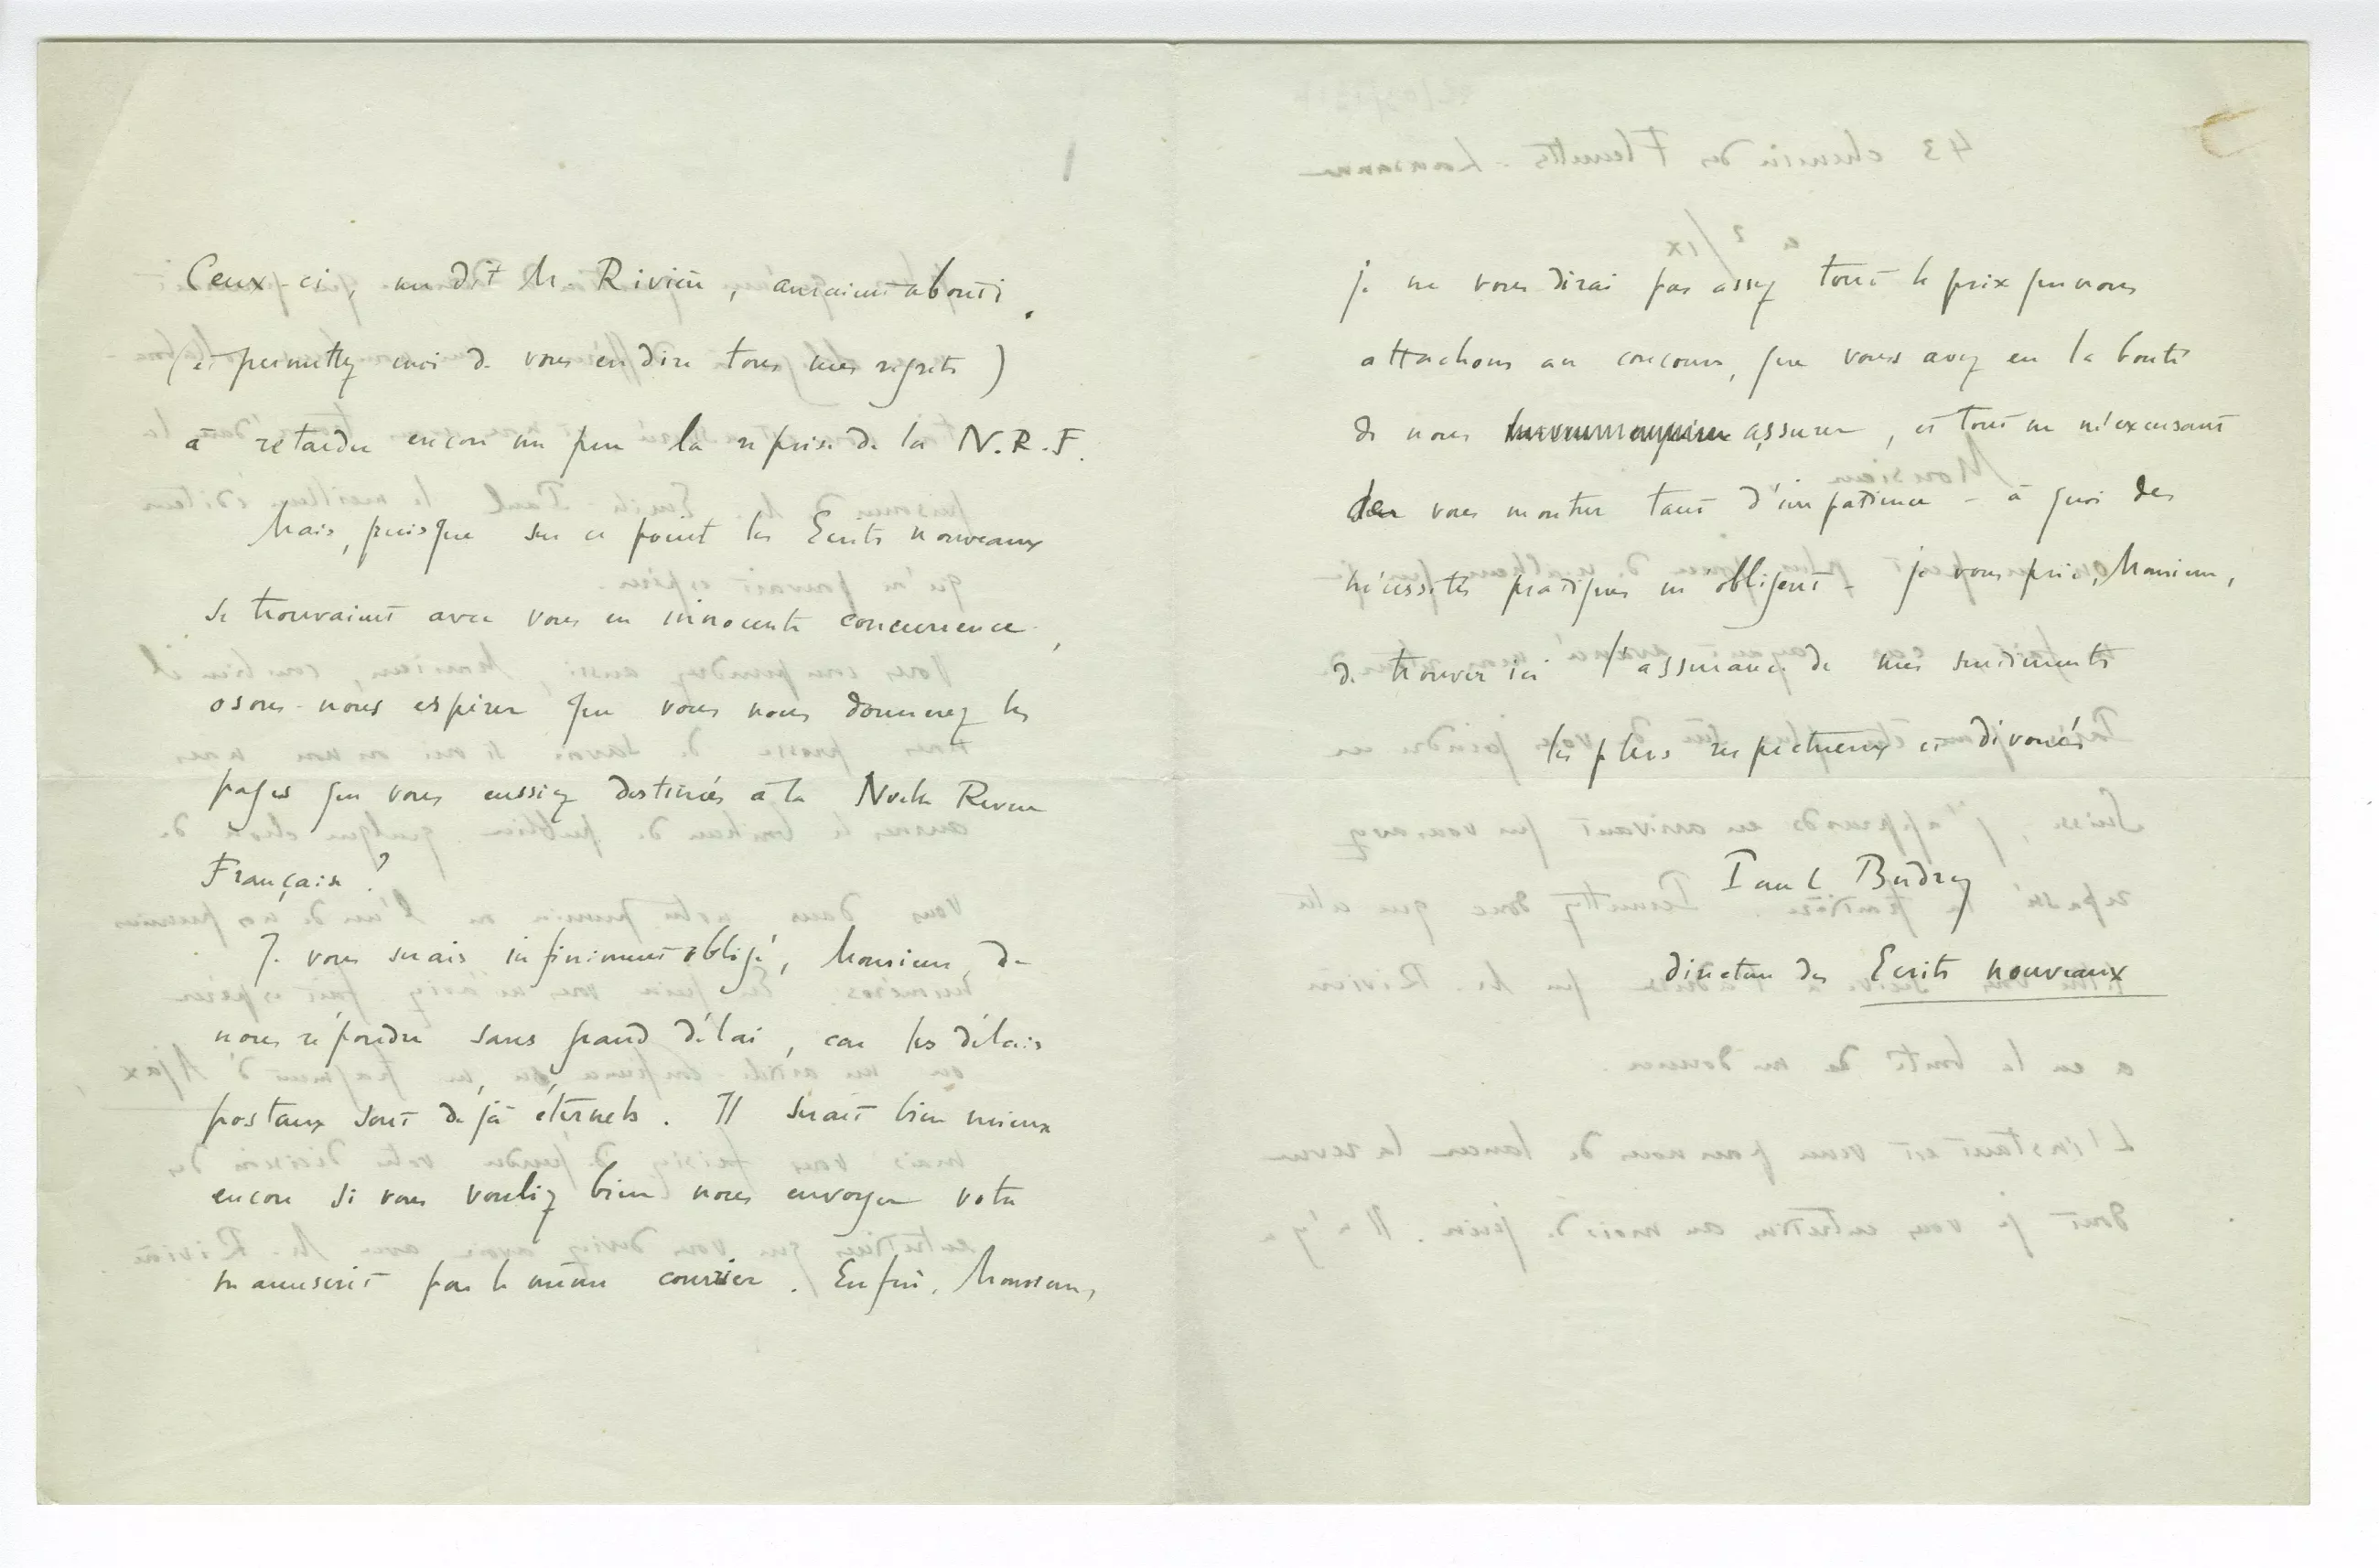 Ceux-ci, me dit M. Rivière, auraient abouti
(et permettez moi de vous en dire tous mes regrets)
à retarder encore un peu la reprise de la N.R.F.
Mais, puisque sur ce point les Ecrits nouveaux
se trouvaient avec vous en innocente concurrence,
osons-nous espérer que vous nous donnerez les
pages que vous eussiez destinées à la Nvelle Revue
Française ?
Je vous serais infiniment obligé, Monsieur, de
nous répondre sans grand délai, car les délais
postaux sont déjà éternels. Il serait bien mieux
encore si vous vouliez bien nous envoyer votre
manuscrit par le même courrier. Enfin, Monsieur,
je ne vous dirai pas assez tout le prix que nous
attachons au concours, que vous avez eu la bonté
de nous assurer, et tout en m'excusant
de vous montrer tant d'impatience - à quoi des
nécessités pratiques m'obligent - je vous prie, Monsieur,
de trouver ici l'assurance de mes sentiments
les plus respectueux et dévoués
Paul Budry
directeur des Ecrits nouveaux